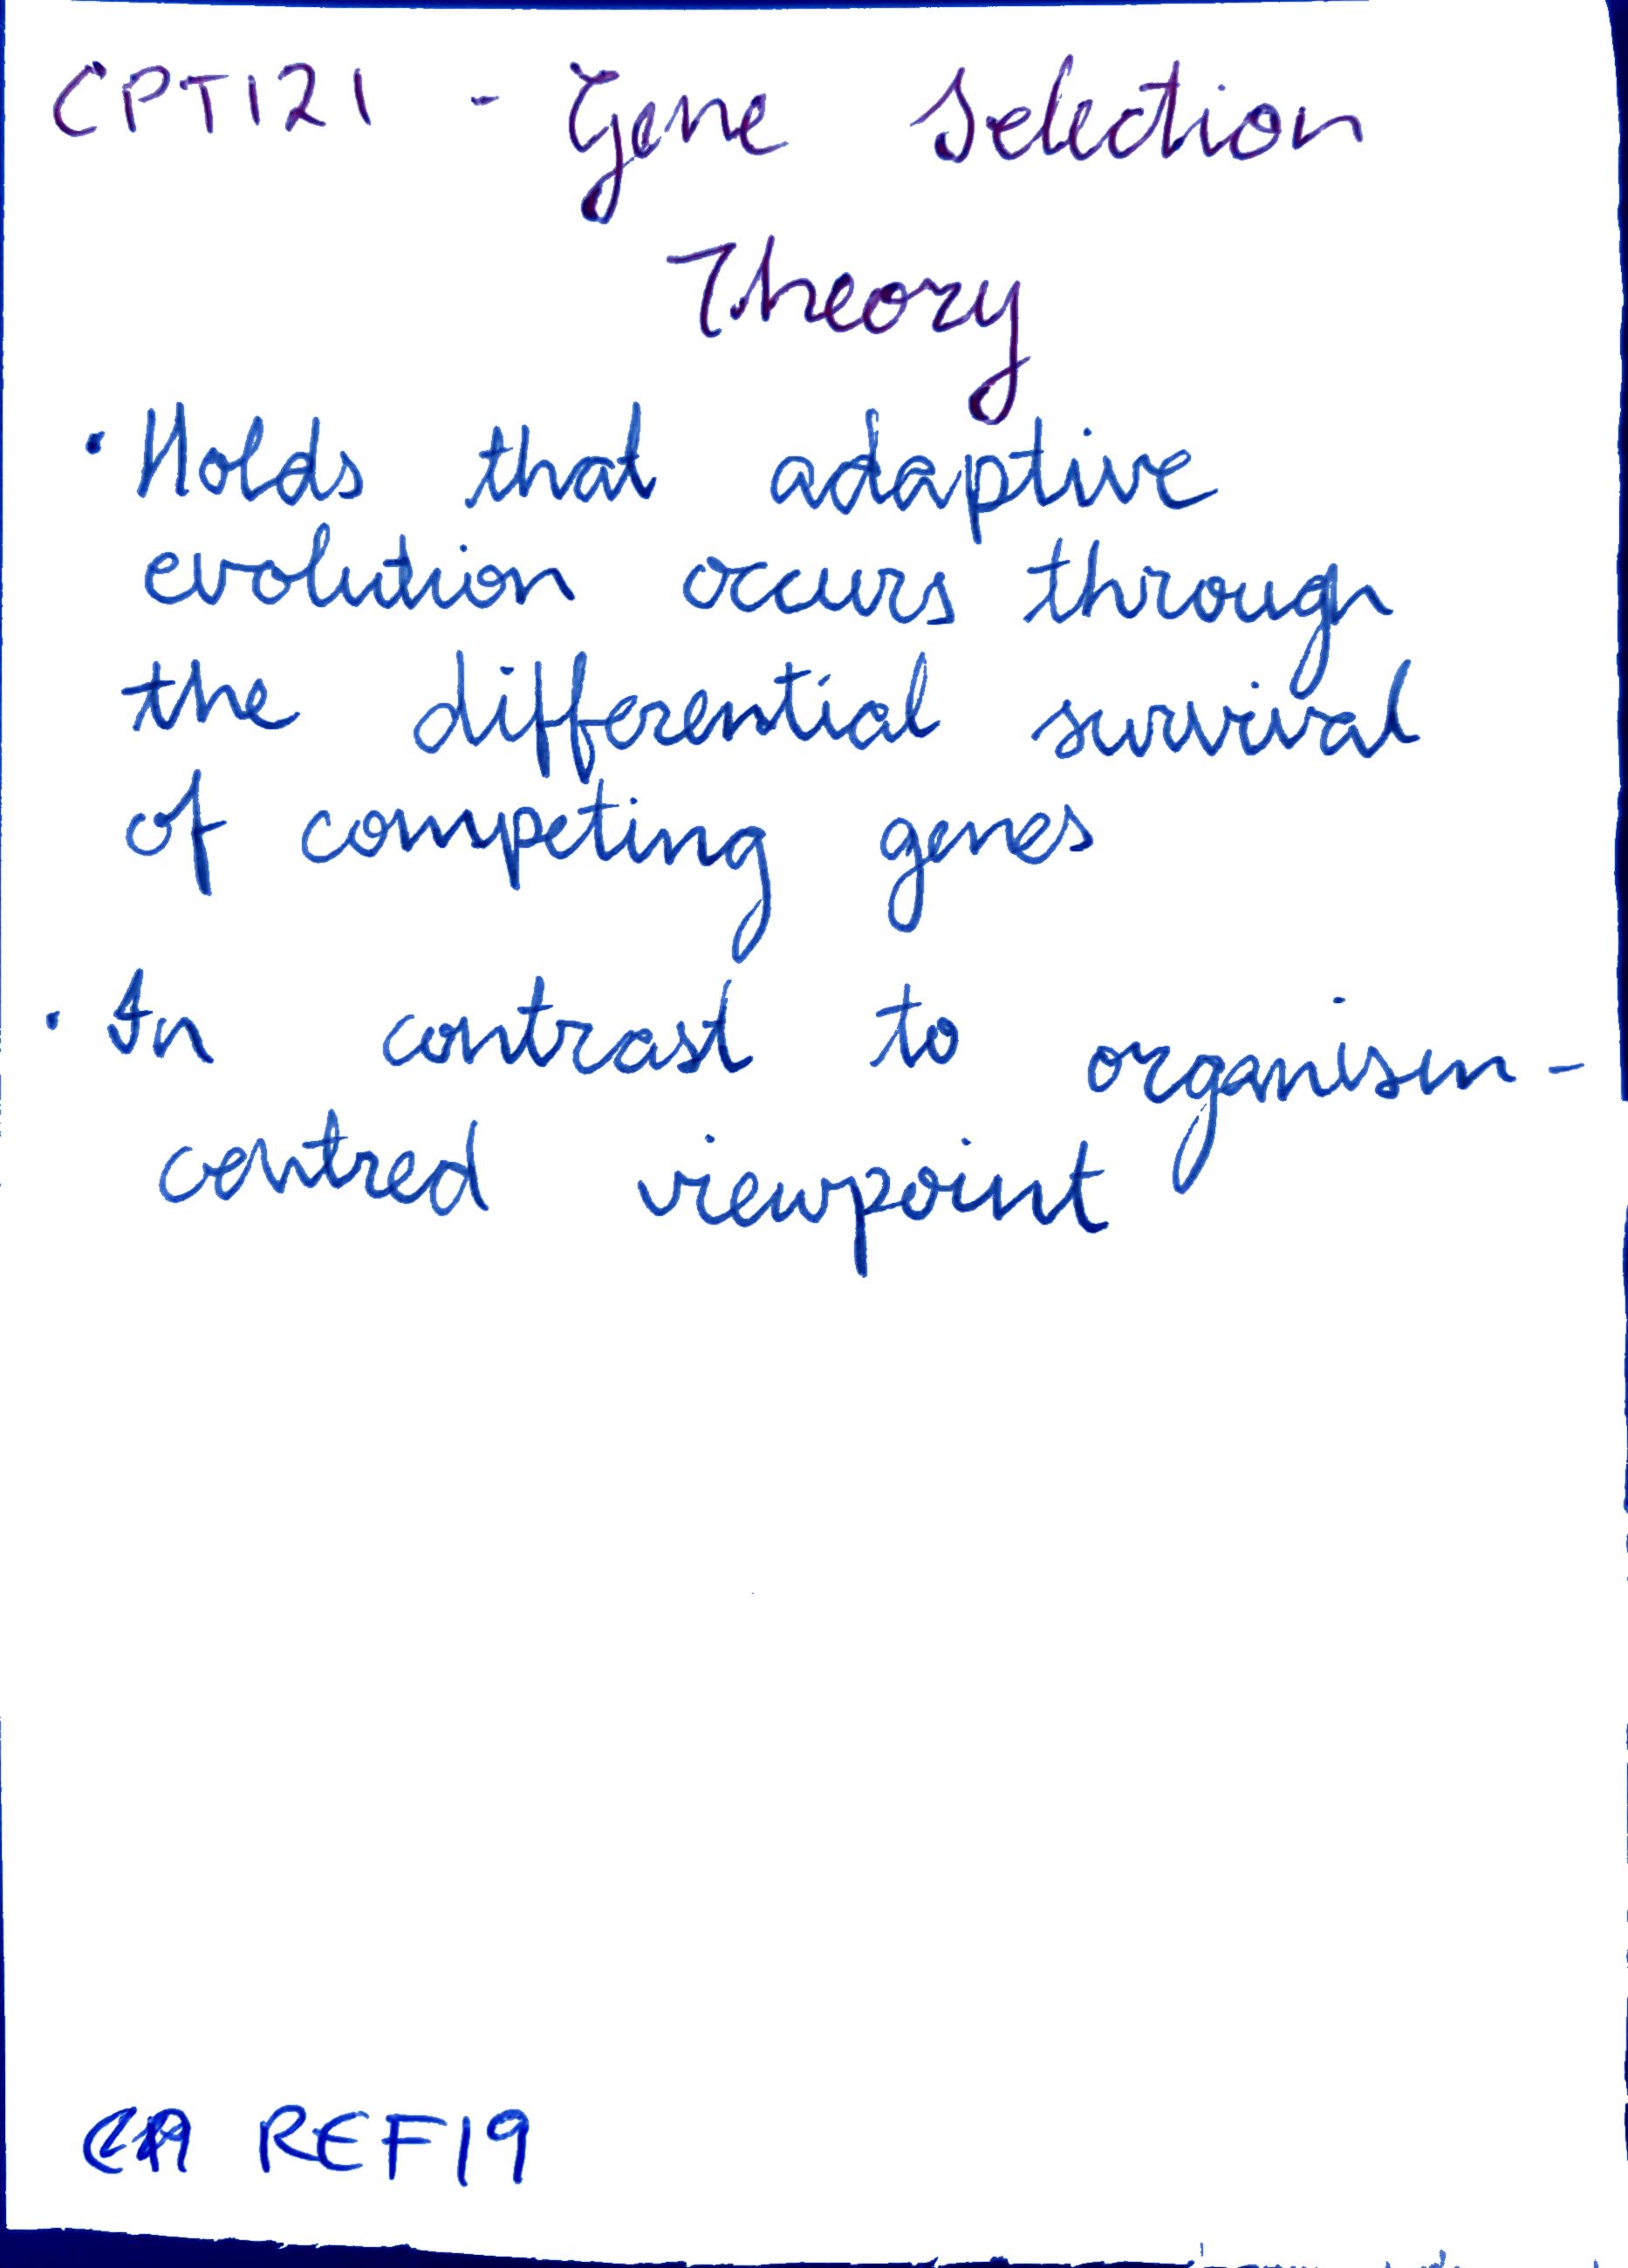 CPT121 - Gene Selection
Theory
· Holds that adaptive
evolution occurs through
the differential survival
of competing genes
· In contrast to organism-
centred viewpoint
REF19